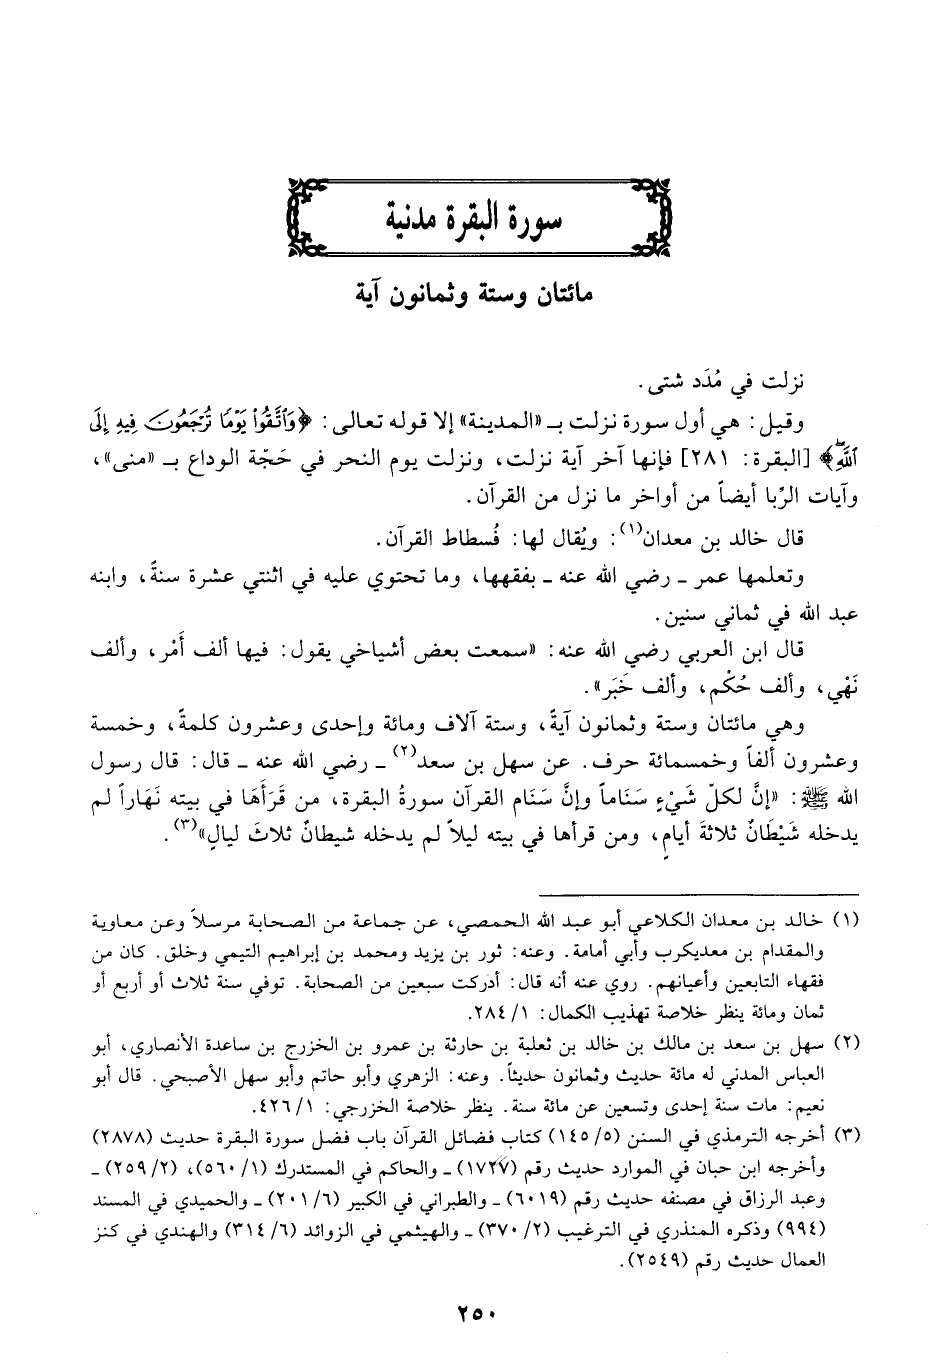 سورة البقرة مدنية
مائتان وستة وثمانون آية
نزلت في مُدَد شتى.
وقيل: هي أول سورة نزلت بـ «المدينة» إلا قوله تعالى: ﴿وَٱتَّقُوا۟ يَوْمًا تُرْجَعُونَ فِيهِ إِلَى
ٱللَّهِ﴾ [البقرة: ٢٨١] فإنها آخر آية نزلت، ونزلت يوم النحر في حَجّة الوداع بـ «منى»،
وآيات الرِّبا أيضاً من أواخر ما نزل من القرآن.
قال خالد بن معدان(١): ويُقال لها: فُسطاط القرآن.
وتعلمها عمر ـ رضي الله عنه ـ بفقهها، وما تحتوي عليه في اثنتي عشرة سنةً، وابنه
عبد الله في ثماني سنين.
قال ابن العربي رضي الله عنه: «سمعت بعض أشياخي يقول: فيها ألف أَمْر، وألف
نَهْي، وألف حُكْم، وألف خَبَر».
وهي مائتان وستة وثمانون آيةً، وستة آلاف ومائة وإحدى وعشرون كلمةً، وخمسة
وعشرون ألفاً وخمسمائة حرف. عن سهل بن سعد(٢) ـ رضي الله عنه ـ قال: قال رسول
الله ﷺ: «إنَّ لكلّ شَيْءٍ سَنَاماً وإنَّ سَنَام القرآن سورةُ البقرة، من قَرَأَهَا في بيته نَهَاراً لم
يدخله شَيْطَانٌ ثلاثةَ أيامٍ، ومن قرأها في بيته ليلاً لم يدخله شيطانٌ ثلاثَ ليالٍ»(٣).
(١) خالد بن معدان الكلاعي أبو عبد الله الحمصي، عن جماعة من الصحابة مرسلاً وعن معاوية
والمقدام بن معديكرب وأبي أمامة. وعنه: ثور بن يزيد ومحمد بن إبراهيم التيمي وخلق. كان من
فقهاء التابعين وأعيانهم. روي عنه أنه قال: أدركت سبعين من الصحابة. توفي سنة ثلاث أو أربع أو
ثمان ومائة ينظر خلاصة تهذيب الكمال: ٢٨٤/١.
(٢) سهل بن سعد بن مالك بن خالد بن ثعلبة بن حارثة بن عمرو بن الخزرج بن ساعدة الأنصاري، أبو
العباس المدني له مائة حديث وثمانون حديثاً. وعنه: الزهري وأبو حاتم وأبو سهل الأصبحي. قال أبو
نعيم: مات سنة إحدى وتسعين عن مائة سنة. ينظر خلاصة الخزرجي: ٤٢٦/١.
(٣) أخرجه الترمذي في السنن (١٤٥/٥) كتاب فضائل القرآن باب فضل سورة البقرة حديث (٢٨٧٨)
وأخرجه ابن حبان في الموارد حديث رقم (١٧٢٧) ـ والحاكم في المستدرك (٥٦٠/١)، (٢٥٩/٢) ـ
وعبد الرزاق في مصنفه حديث رقم (٦٠١٩) ـ والطبراني في الكبير (٢٠١/٦) ـ والحميدي في المسند
(٩٩٤) وذكره المنذري في الترغيب (٣٧٠/٢) ـ والهيثمي في الزوائد (٣١٤/٦) والهندي في كنز
العمال حديث رقم (٢٥٤٩).
٢٥٠